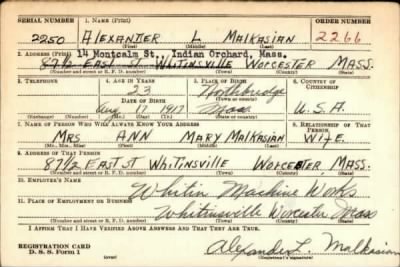 SERIAL NUMBER 1. NAME (Print) ORDER NUMBER
2250 ALEXANDER L MALKASIAN 2266
(First) (Middle) (Last)
2. ADDRESS (Print) 14 Montcalm St., Indian Orchard, Mass.
87 1/2 EAST ST WHITINSVILLE WORCESTER MASS.
(Number and street or R. F. D. number) (Town) (County) (State)
3. TELEPHONE 4. AGE IN YEARS 5. PLACE OF BIRTH 6. COUNTRY OF CITIZENSHIP
23 Northbridge
DATE OF BIRTH (Town or county)
Aug 17 1917 Mass U.S.A.
(Exchange) (Number) (Mo.) (Day) (Yr.) (State or country)
7. NAME OF PERSON WHO WILL ALWAYS KNOW YOUR ADDRESS 8. RELATIONSHIP OF THAT PERSON
MRS ANN MARY MALKASIAN WIFE.
(Mr., Mrs., Miss) (First) (Middle) (Last)
9. ADDRESS OF THAT PERSON
87 1/2 EAST ST WHITINSVILLE WORCESTER, MASS.
(Number and street or R. F. D. number) (Town) (County) (State)
10. EMPLOYER'S NAME
Whitin Machine Works
11. PLACE OF EMPLOYMENT OR BUSINESS
Whitinsville Worcester Mass
(Number and street or R. F. D. number) (Town) (County) (State)
I AFFIRM THAT I HAVE VERIFIED ABOVE ANSWERS AND THAT THEY ARE TRUE.
REGISTRATION CARD
D. S. S. Form 1 Alexander L. Malkasian
(Registrant's signature)